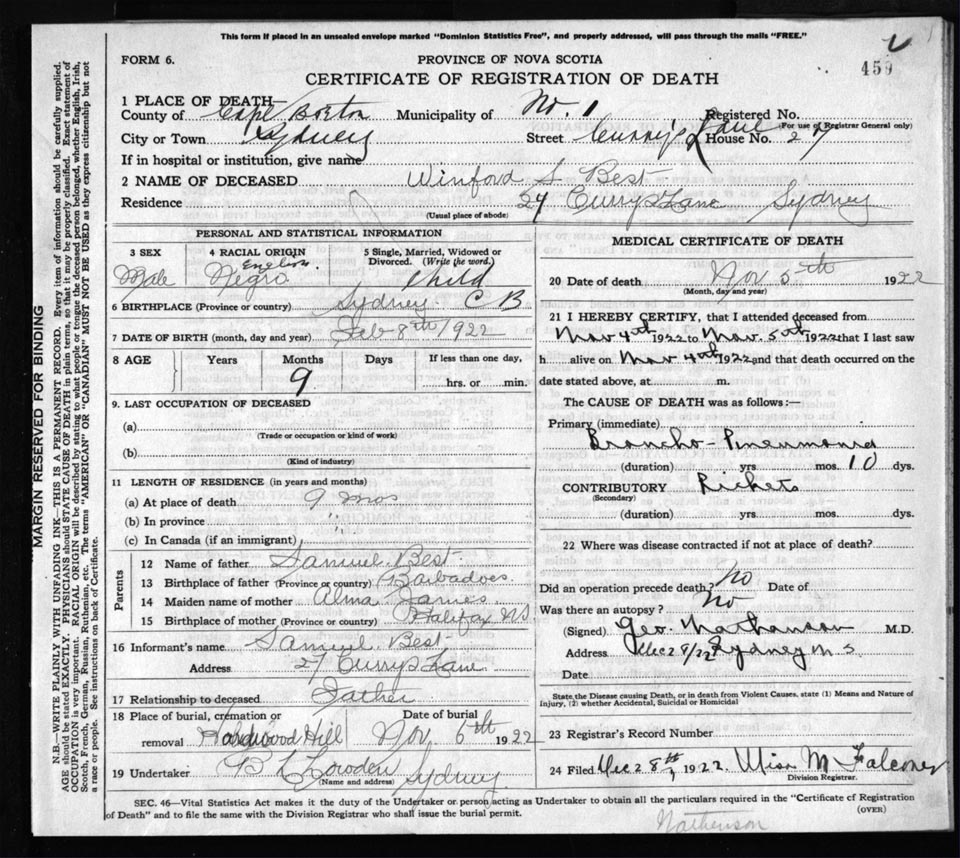 This form if placed in an unsealed envelope marked "Dominion Statistics Free", and properly addressed, will pass through the mails "FREE."
FORM 6.
PROVINCE OF NOVA SCOTIA
459
CERTIFICATE OF REGISTRATION OF DEATH
1 PLACE OF DEATH—
County of Cape Breton Municipality of No. 1 Registered No.
(For use of Registrar General only)
City or Town Sydney Street Curry's Lane House No. 27
If in hospital or institution, give name
2 NAME OF DECEASED Winford S. Best
Residence 27 Curry's Lane Sydney
(Usual place of abode)
PERSONAL AND STATISTICAL INFORMATION
3 SEX 4 RACIAL ORIGIN 5 Single, Married, Widowed or Divorced. (Write the word.)
Male English Negro Child
6 BIRTHPLACE (Province or country) Sydney C B
7 DATE OF BIRTH (month, day and year) Feb 8th 1922
8 AGE Years Months Days If less than one day,
9 hrs. or min.
9. LAST OCCUPATION OF DECEASED
(a)
(Trade or occupation or kind of work)
(b)
(Kind of industry)
11 LENGTH OF RESIDENCE (in years and months)
(a) At place of death 9 mos
(b) In province "
(c) In Canada (if an immigrant)
Parents
12 Name of father Samuel Best
13 Birthplace of father (Province or country) Barbadoes.
14 Maiden name of mother Alma James
15 Birthplace of mother (Province or country) Halifax NS
16 Informant's name Samuel Best
Address 27 Curry's Lane
17 Relationship to deceased Father
18 Place of burial, cremation or removal Hardwood Hill Date of burial Nov. 6th 1922
19 Undertaker Sydney
(Name and address)
MEDICAL CERTIFICATE OF DEATH
20 Date of death Nov 5th 1922
(Month, day and year)
21 I HEREBY CERTIFY, that I attended deceased from
Nov 4th 1922 to Nov. 5th 1922 that I last saw
h alive on Nov 4th 1922 and that death occurred on the
date stated above, at m.
The CAUSE OF DEATH was as follows:—
Primary (immediate)
Broncho-Pneumonia
(duration) yrs mos. 10 dys.
CONTRIBUTORY Rickets
(Secondary)
(duration) yrs. mos. dys.
22 Where was disease contracted if not at place of death?
Did an operation precede death? No Date of
Was there an autopsy? No
(Signed) Geo. Nathanson M.D.
Address Dec 28/22 Sydney N S
Date
State the Disease causing Death, or in death from Violent Causes, state (1) Means and Nature of
Injury, (2) whether Accidental, Suicidal or Homicidal
23 Registrar's Record Number
24 Filed Dec 28th 1922. Miss M Falconer
Division Registrar.
SEC. 46—Vital Statistics Act makes it the duty of the Undertaker or person acting as Undertaker to obtain all the particulars required in the "Certificate of Registration
of Death" and to file the same with the Division Registrar who shall issue the burial permit.
(OVER)
Nathenson
MARGIN RESERVED FOR BINDING
N.B.—WRITE PLAINLY WITH UNFADING INK—THIS IS A PERMANENT RECORD. Every item of information should be carefully supplied.
AGE should be stated EXACTLY. PHYSICIANS should STATE CAUSE OF DEATH in plain terms, so that it may be properly classified. Exact statement of
OCCUPATION is very important. RACIAL ORIGIN will be described by stating to what people or tongue the deceased person belonged, whether English, Irish,
Scotch, French, German, Russian, Ruthenian, etc. The terms "AMERICAN" or "CANADIAN" MUST NOT BE USED as they express citizenship but not
a race or people. See instructions on back of Certificate.